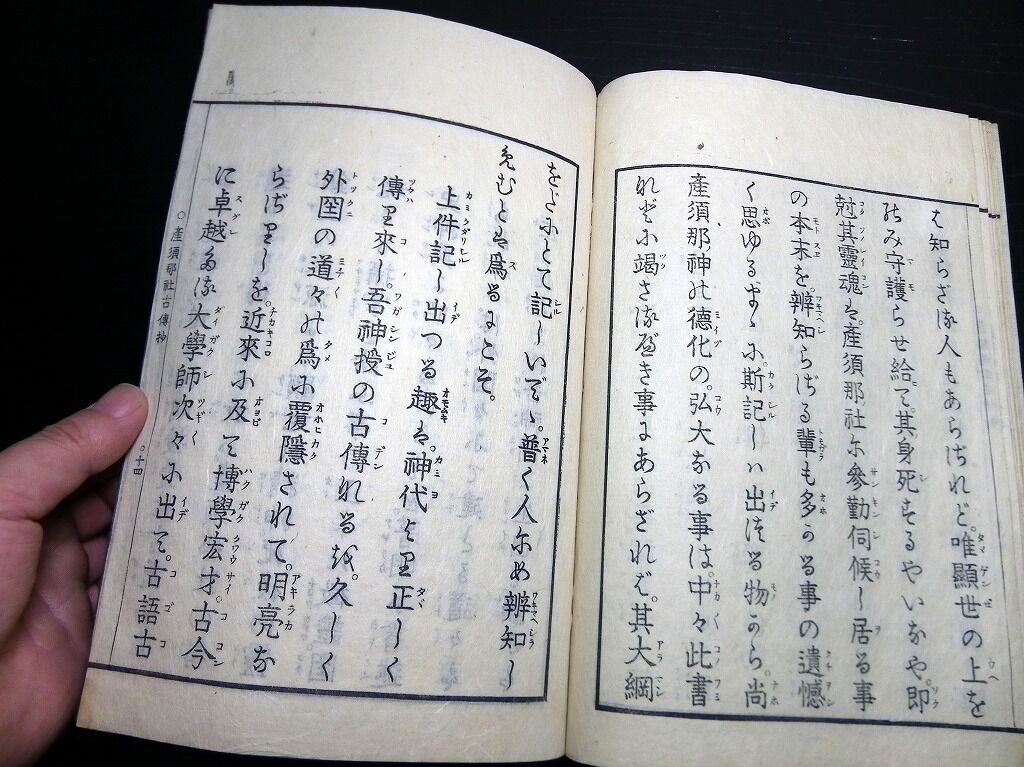 は知らざる人もあらざれど。唯顯世の上を
のみ守護らせ給て。其身死するやいなや。即
尅其靈魂は。産須那社に參勤伺候し居る事
の本末を。辨知らざる輩も多かる事の遺憾
く思ゆるまゝに。斯記しハ出づる物から。尚
産須那神の德化の。弘大なる事は。中々此書
などに竭さるべき事にあらざれば。其大綱
をだにとて記しいでゝ。普く人にも辨知し
めむとは爲るにこそ。
上件記し出つる趣は。神代より正しく
傳り來し。吾神授の古傳なるを。久しく
外圀の道々の爲に覆隱されて。明亮な
らざりしを。近來に及て博學宏才。古今
に卓越たる大學師次々に出て。古語古
○産須那社古傳抄
○十四